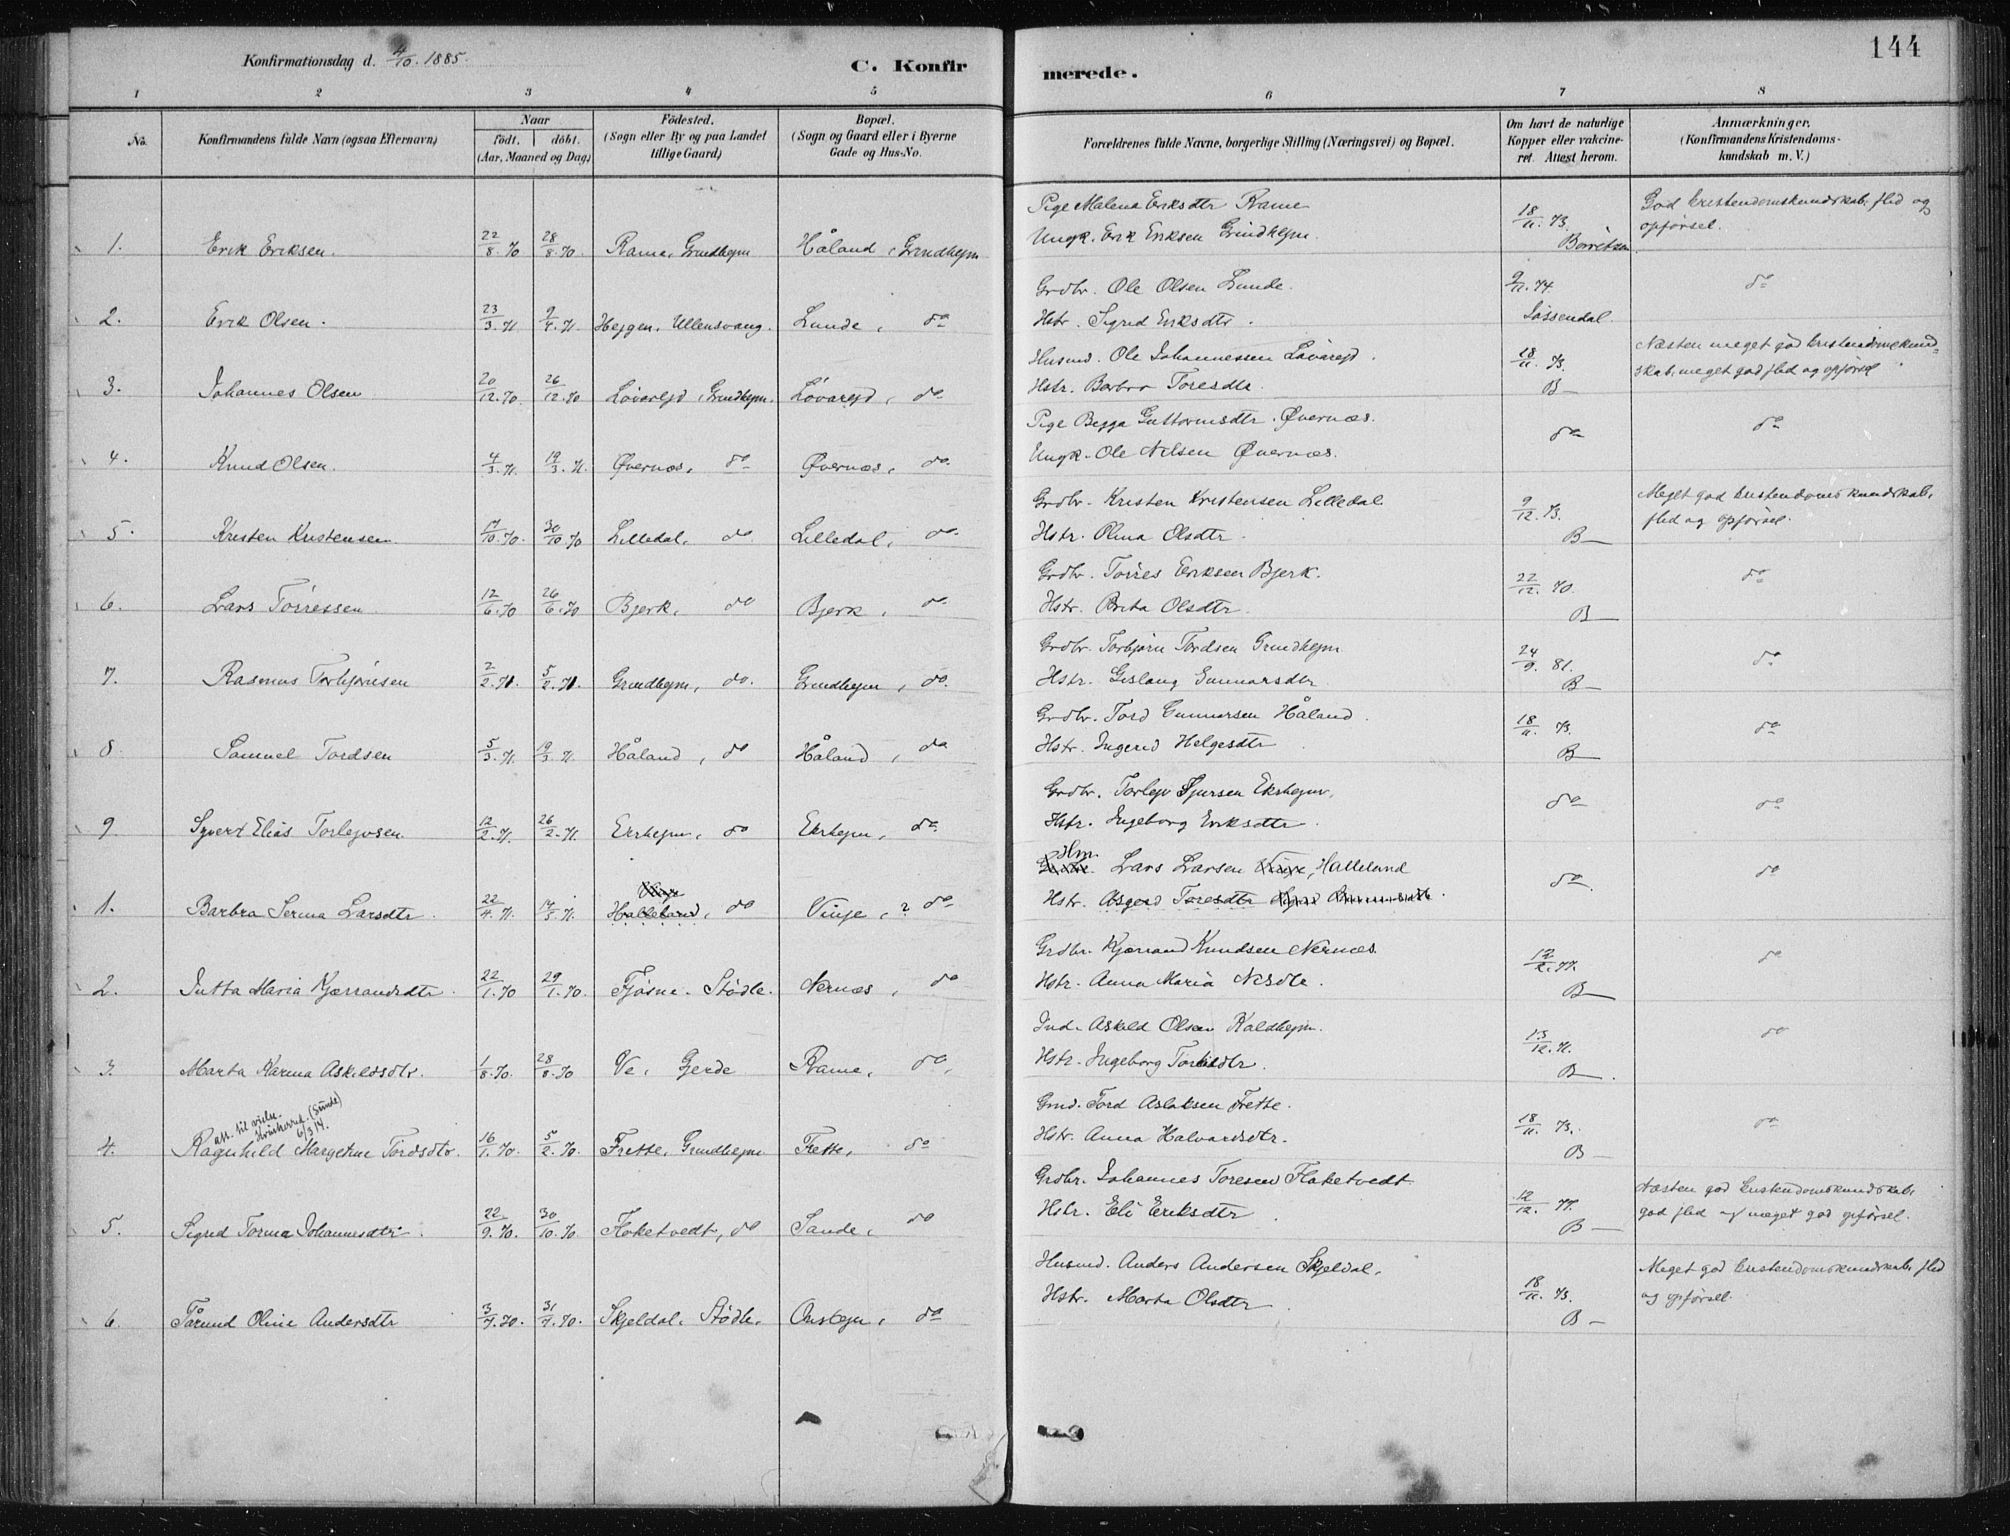 Konfirmationsdag d. 4/10. 1885.
C. Konfirmerede.
144
1 2 3 4 5 6 7 8
No.
Konfirmandens fulde Navn (ogsaa Efternavn)
Naar
födt. döbt.
(Aar, Maaned og Dag)
Födested.
(Sogn eller By og paa Landet
tillige Gaard)
Bopæl.
(Sogn og Gaard eller i Byerne
Gade og Hus-No.
Forældrenes fulde Navne, borgerlige Stilling (Næringsvei) og Bopæl.
Om havt de naturlige
Kopper eller vakcine-
ret. Attest herom.
Anmærkninger.
(Konfirmandens Kristendoms-
kundskab m. V.)
Pige Malena Eriksdtr Rame
1. Erik Eriksen. 22/8.70 28/8.70 Rame, Grindhejm Håland, Grindhejm Ungk. Erik Eriksen Grindhejm. 18/11.73. Borritzen God kristendomskundskab, flid og
opførsel.
Grdbr. Ole Olsen Lunde.
2. Erik Olsen. 23/3.71 9/4.71. Hejgen, Ullensvang. Lunde, do Hstr. Sigrid Eriksdtr. 9/11.74 do
Husmd. Ole Johannessen Løvarejd.
3. Johannes Olsen 20/12.70 26/12.70 Løvarejd, Grindhejm. Løvarejd, do Hstr. Barbro Toresdtr. 18/11.73. B Næsten meget god kristendomskund-
skab, meget god flid og opførsel
Pige Begga Guttormsdtr. Øvernæs.
4. Knud Olsen. 4/3.71. 19/3.71. Øvernæs, do Øvernæs, do. Ungk. Ole Nilsen Øvernæs. do do
Grdbr. Kristen Kristensen Lilledal
5. Kristen Kristensen 17/10.70. 30/10.70 Lilledal, do. Lilledal, do. Hstr. Olina Olsdtr. 9/12.73. B Meget god kristendomskundskab,
flid og opførsel.
Grdbr. Tørres Eriksen Bjerk.
6. Lars Tørressen. 12/6.70 26/6.70 Bjerk, do Bjerk, do. Hstr. Brita Olsdtr. 22/12.70. B do
Grdbr. Torbjørn Tordsen Grindhejm
7. Rasmus Torbjørnsen 2/2.71. 5/2.71. Grindhejm, do. Grindhejm, do. Hstr. Gislaug Gunnarsdtr 24/9.81. B do
Grdbr. Tord Gunnarsen Håland.
8. Samuel Tordsen 5/3.71. 19/3.71 Håland, do Håland, do Hstr. Ingerid Helgesdtr 18/11.73. B do
Grdbr. Torlejv Sjursen Ekrhejm.
9. Syvert Elias Torlejvsen 12/2.71. 26/2.71. Ekrhejm, do Ekrhejm, do. Hstr. Ingeborg Eriksdtr. do do
Hm. Lars Larsen Vinje, Halleland
1. Barbra Serina Larsdtr. 22/4.71. 14/5.71. Vinje Halleland, do Vinje,? do Hstr. Asgerd Toresdtr do. do
Grdbr. Kjærrand Knudsen Nernæs.
2. Jutta Maria Kjærrandsdtr. 22/1.70 29/1.70. Fjøsne. Stødle. Nernæs, do Hstr. Anna Maria Nilsdtr. B do
Ind. Askild Olsen Kaldhejm.
3. Marta Karina Askildsdtr. 1/8.70. 28/8.70 Ve, Gjerde Rame, do. Hstr. Ingeborg 13/12.71. B do
att. til vielse. (Sunde)
6/3 14.
Gmd. Tord Aslaksen Frette.
4. Ragnhild Margetine Tordsdtr. 16/1.70. 5/2.70. Frette, Grindhejm Frette, do Hstr. Anna Halvardsdtr. 18/11.73. B do
Grdbr. Johannes Toresen Flaketvedt
5. Sigrid Torina Johannesdtr. 22/9.70. 30/10.70. Flaketvedt, do Sande, do Hstr. Eli Eriksdtr 12/12.77. B Næsten god kristendomskundskab,
god flid og meget god opførsel.
Husmd. Anders Andersen Skjeldal.
6. Tårund Oline Andersdtr 3/7.70. 31/7.70. Skjeldal. Stødle. do Hstr. Marta Olsdtr 18/11.73. B Meget god kristendomskundskab, flid
og opførsel.